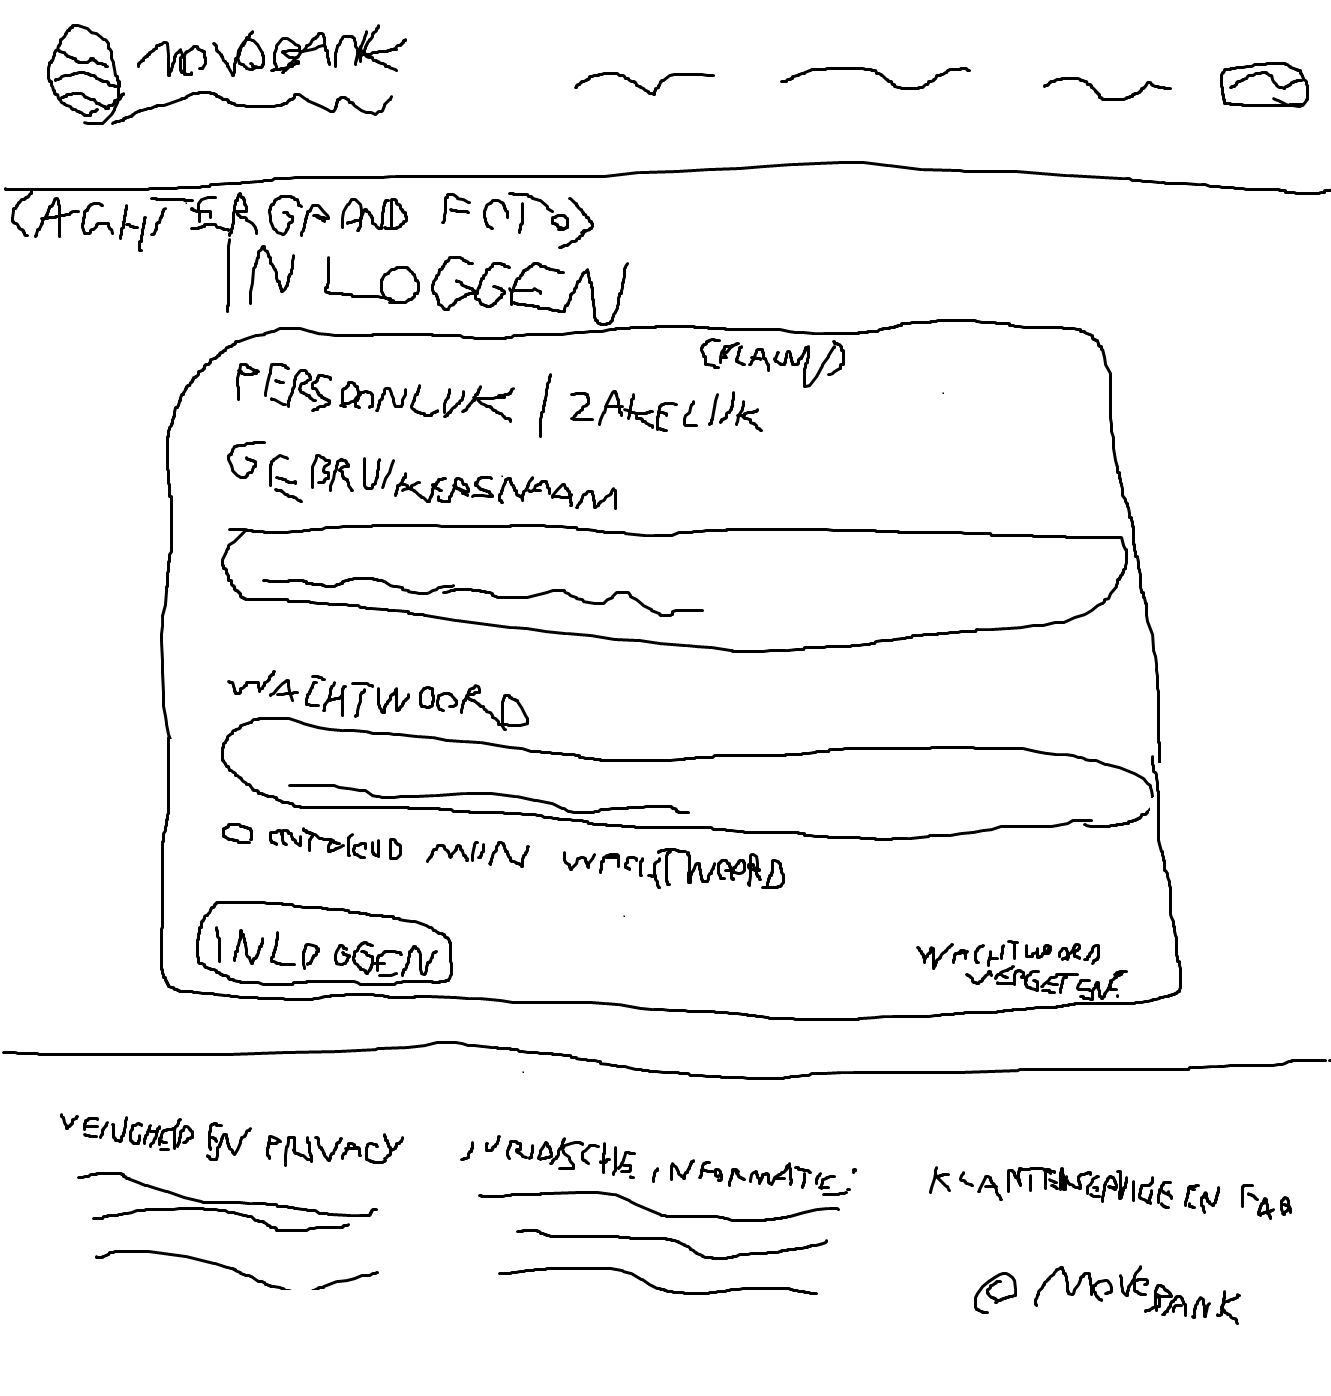 NOVOBANK
(AGHTERGRAND FOTO)
INLOGGEN
PERSOONLIJK / ZAKELIJK
GEBRUIKERSNAAM
WACHTWOORD
MIJN WACHTWOORD
INLOGGEN
WACHTWOORD
VERGETEN?
VEILIGHEID EN PRIVACY
JURIDISCHE INFORMATIE:
KLANTENSERVICE EN FAQ
© NOVOBANK